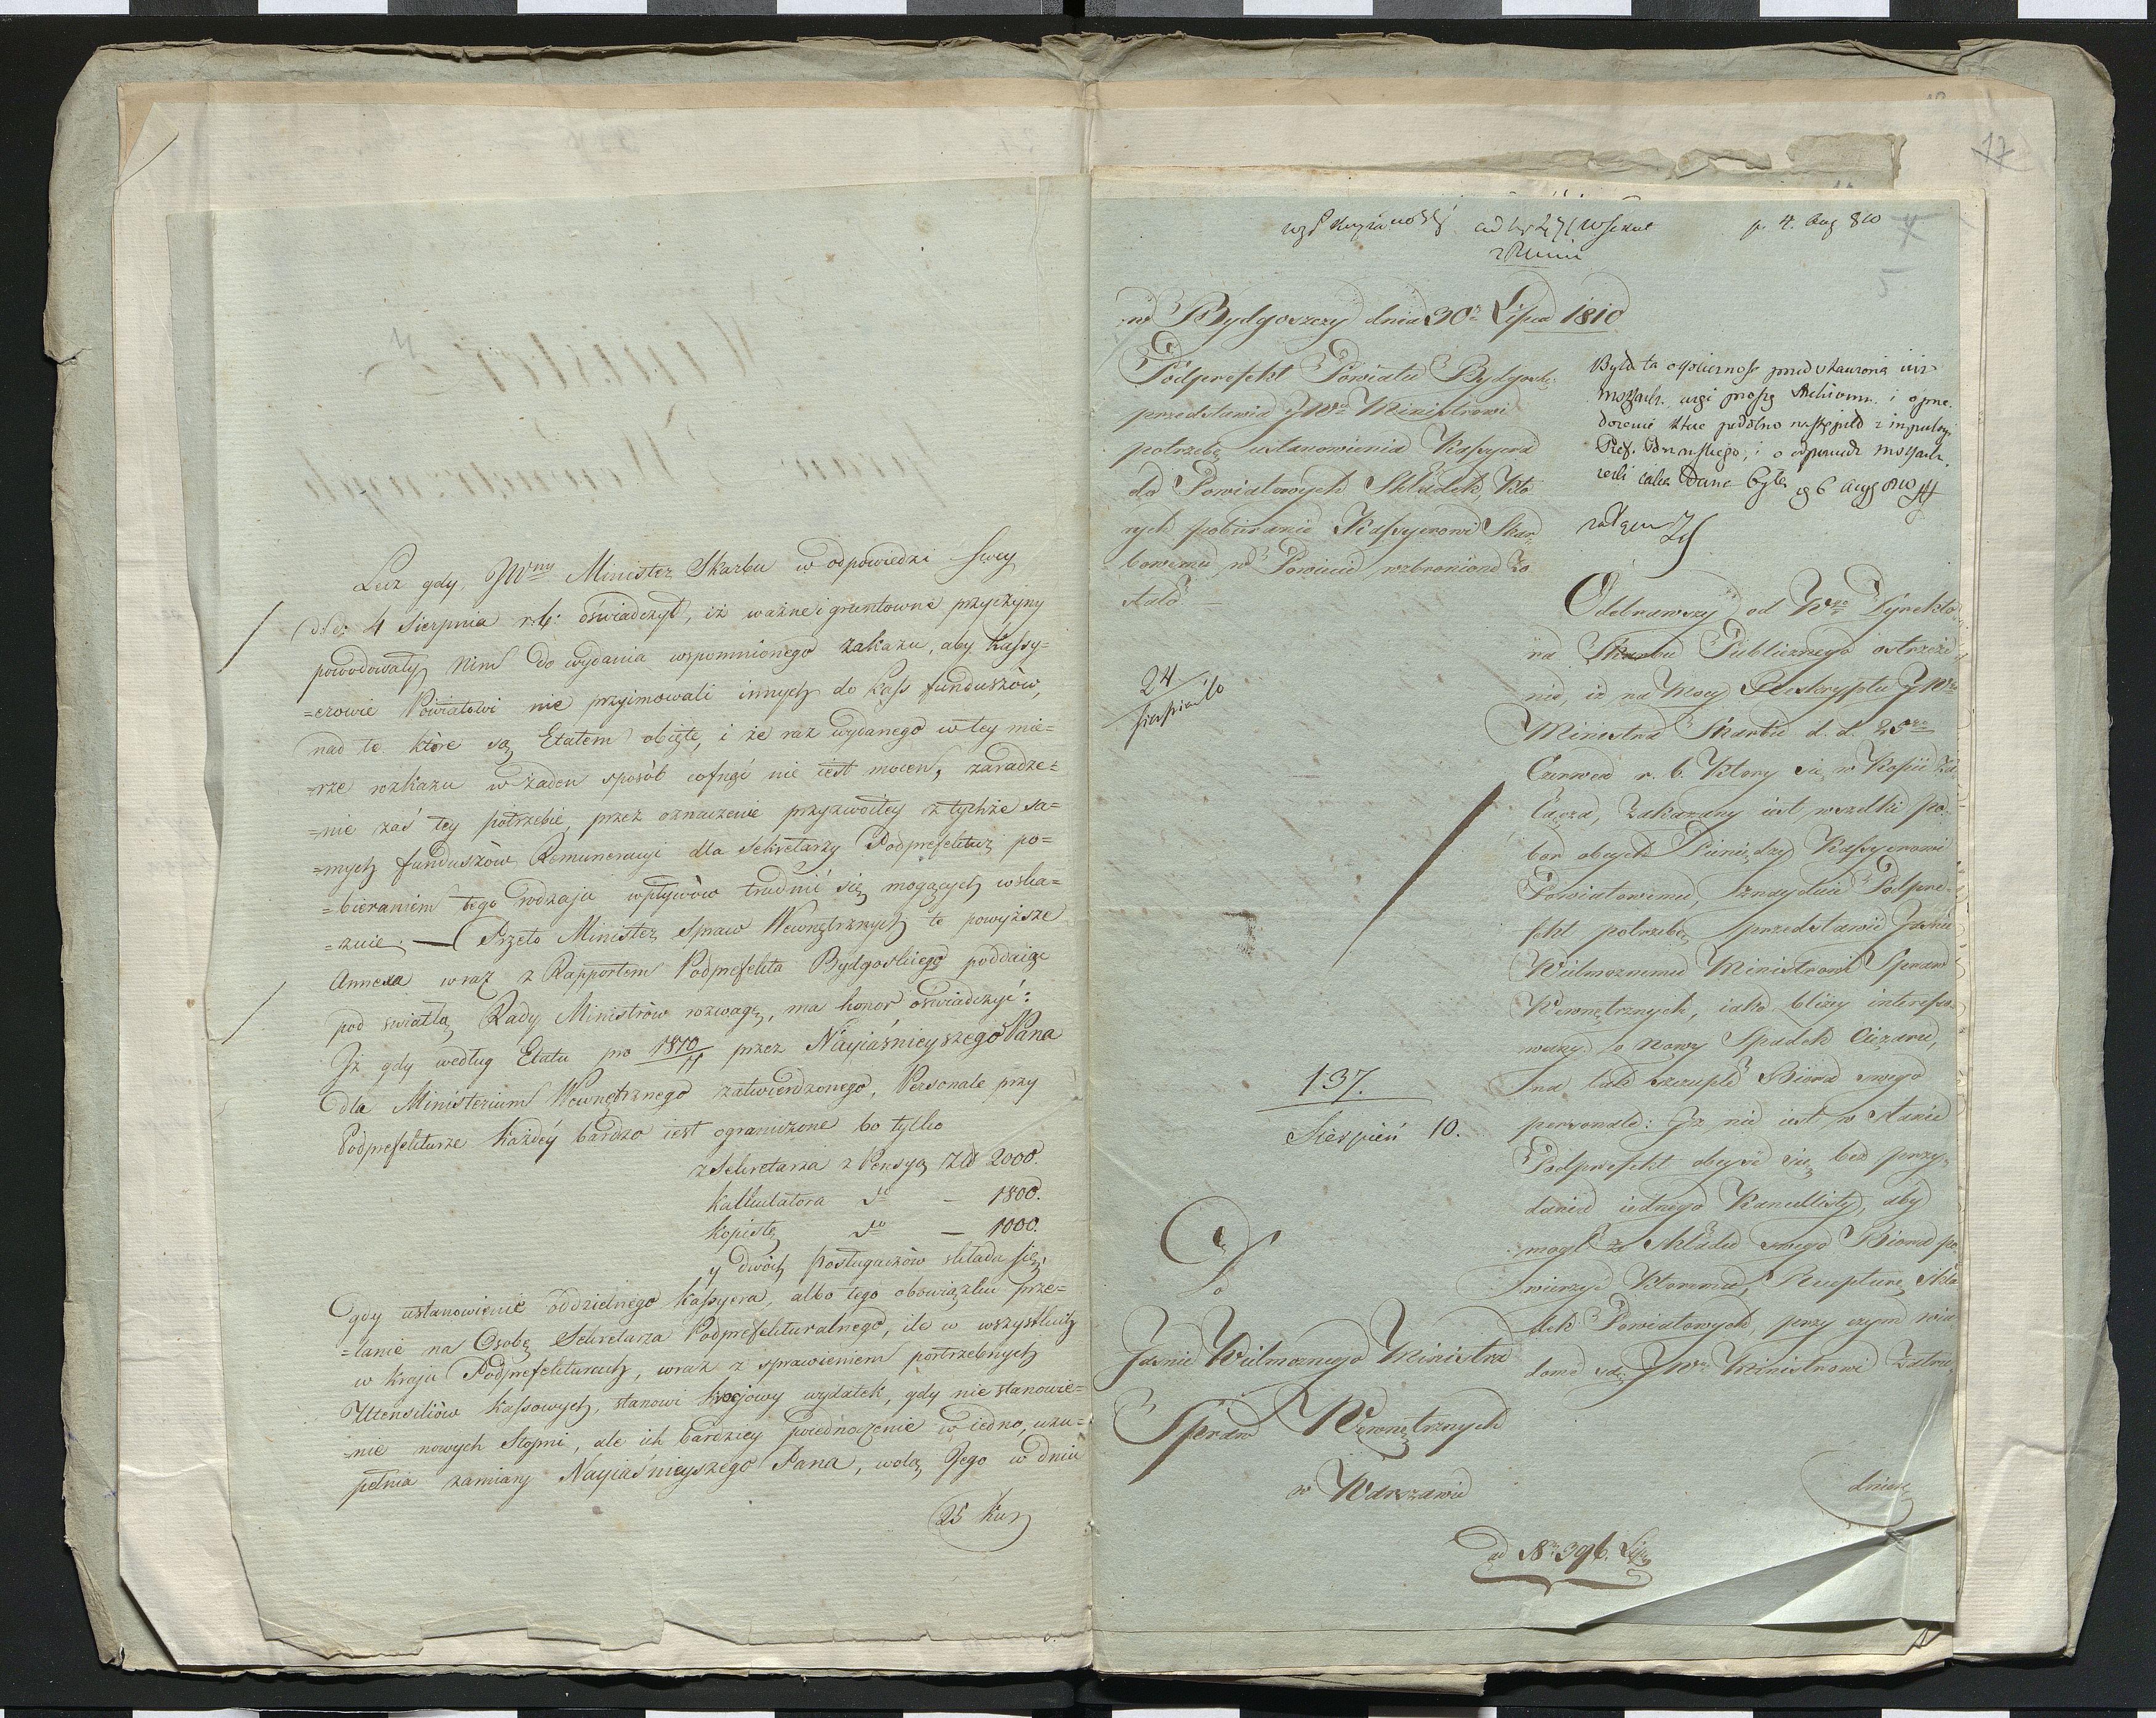 Lecz gdy JWny Minister Skarbu w odpowiedzi swey
d: d: 4 Sierpnia r: b: oświadczył, iż ważne i gruntowne przyczyny
powodowały nim do wydania wspomnionego zakazu, aby Kassy-
=erowie Powiatowi nie przyjmowali innych do Kass funduszów,
nad te które są Etatem objęte, i że raz wydanego w tey mie=
=rze rozkazu w żaden sposób cofnąć nie iest mocen, zaradze=
=nie zaś tey potrzebie, przez oznaczenie przyzwoitey z tychże sa=
=mych funduszów Remuneracyi dla Sekretarzy Podprefektur, po=
=bieraniem tego rodzaju wpływów trudnić się mogących, wska=
=zuie. — Przeto Minister Spraw Wewnętrznych te powyższe
Annexa wraz z Rapportem Podprefekta Bydgoskiego poddaiąc
pod światłą Rady Ministrów rozwagę, ma honor oświadczyć:
Iż gdy według Etatu pro 1810/11 przez Nayiaśnieyszego Pana
dla Ministerium Wewnętrznego zatwierdzonego, Personale przy
Podprefekturze każdey bardzo iest ograniczone bo tylko
z Sekretarza z Pensyą Złł 2000.
Kalkulatora do — 1800.
Kopistę do — 1000.
y dwóch posługaczów składa się,
gdy ustanowienie oddzielnego Kassyera, albo tego obowiązku prze=
=lanie na Osobę Sekretarza Podprefekturalnego, ile w wszystkich
w kraju Podprefekturach, wraz z sprawieniem potrzebnych
Utensiliów kassowych, stanowi krajowy wydatek, gdy nie stanowie=
=nie nowych Stopni, ale ich bardziey ziednoczenie w iedno, uzu=
pełnia zamiary Nayiaśnieyszego Pana, wolą Jego w dniu
25 Kw
p. 4. Aug 810
17
w Bydgoszczy dnia 30o Lipca 1810
Podprefekt Powiatu Bydgosk:
przedstawia JWu Ministrowi
potrzebę ustanowienia Kassyera
do Powiatowych Składek, Któ
rych pobieranie Kassyerowi Skar
bowemu w Powiecie wzbronione zo
stało —
Była ta okoliczność przedstawiona
24
Sierpnia
137.
Sierpień 10.
Odebrawszy od Wgo Dyrekto
ra Skarbu Publicznego ostrzeże
nie, iż na Mocy Reskryptu JWo
Ministra Skarbu d. d. 25go
Czerwca r. b. Który się w Kopii za
łącza, zakazany iest wszelki po
bór obcych Pieniędzy Kassyerowi
Powiatowemu, znayduie Podpre
fekt potrzebę przedstawić Jaśnie
Wielmożnemu Ministrowi Spraw
Wewnętrznych, iako bliżey interesso
wany o nowy Spadek Ciężaru,
na tak szczupłe Biora swego
personale: Iż nie iest w Stanie
Podprefekt obeyść się, bez przy-
dania iednego Kancellisty, aby
mógł ze składu swego Biora po
wierzyć któremu, Recepturę skła
dek Powiatowych, przy czym wia
dome są JWu Ministrowi Zatru
dnien
Do
Jaśnie Wielmożnego Ministra
Spraw Wewnętrznych
w Warszawie
ad No 396. Lip.